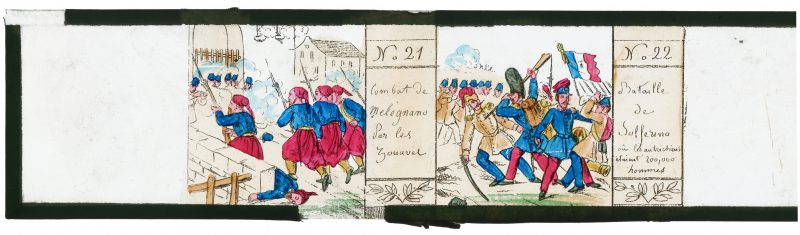 No 21
Combat de
Melegnano
Par les
Zouaves
No 22
Bataille
de
Solferino
où les autrichiens
etaient 200,000
hommes